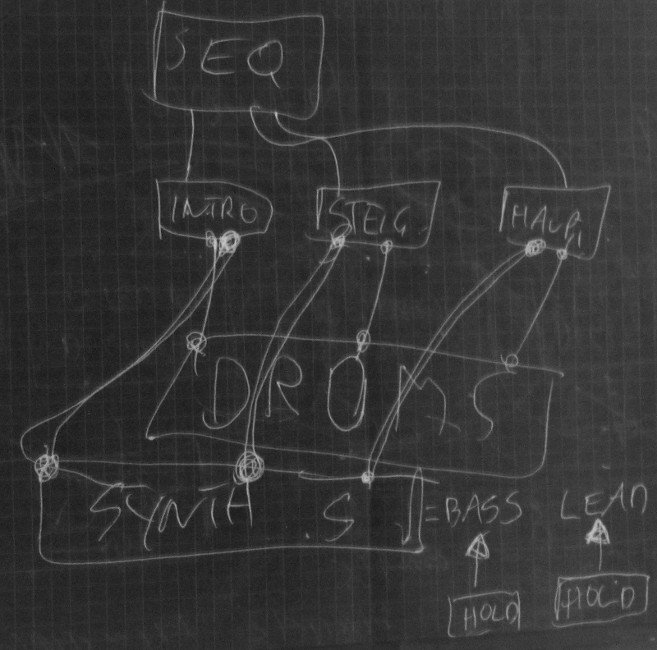 SEQ
INTRO STEIG. HAUPT
DRUMS
SYNTH S =BASS LEAD
HOLD HOLD